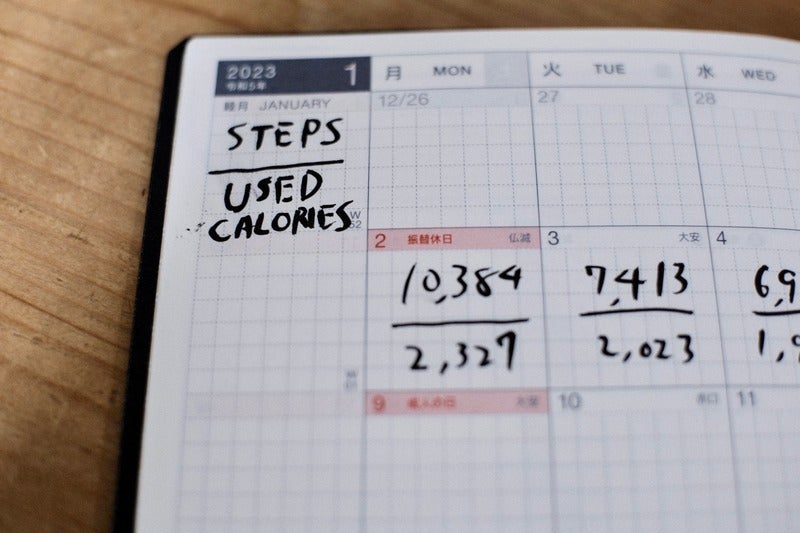 2023 1
令和5年
月 MON
火 TUE
水 WED
睦月 JANUARY
12/26
27
28
STEPS
USED
CALORIES
W
52
2 振替休日 仏滅
3 大安
4
10,384
7,413
6,9
2,327
2,023
1,9
9
10 赤口
11